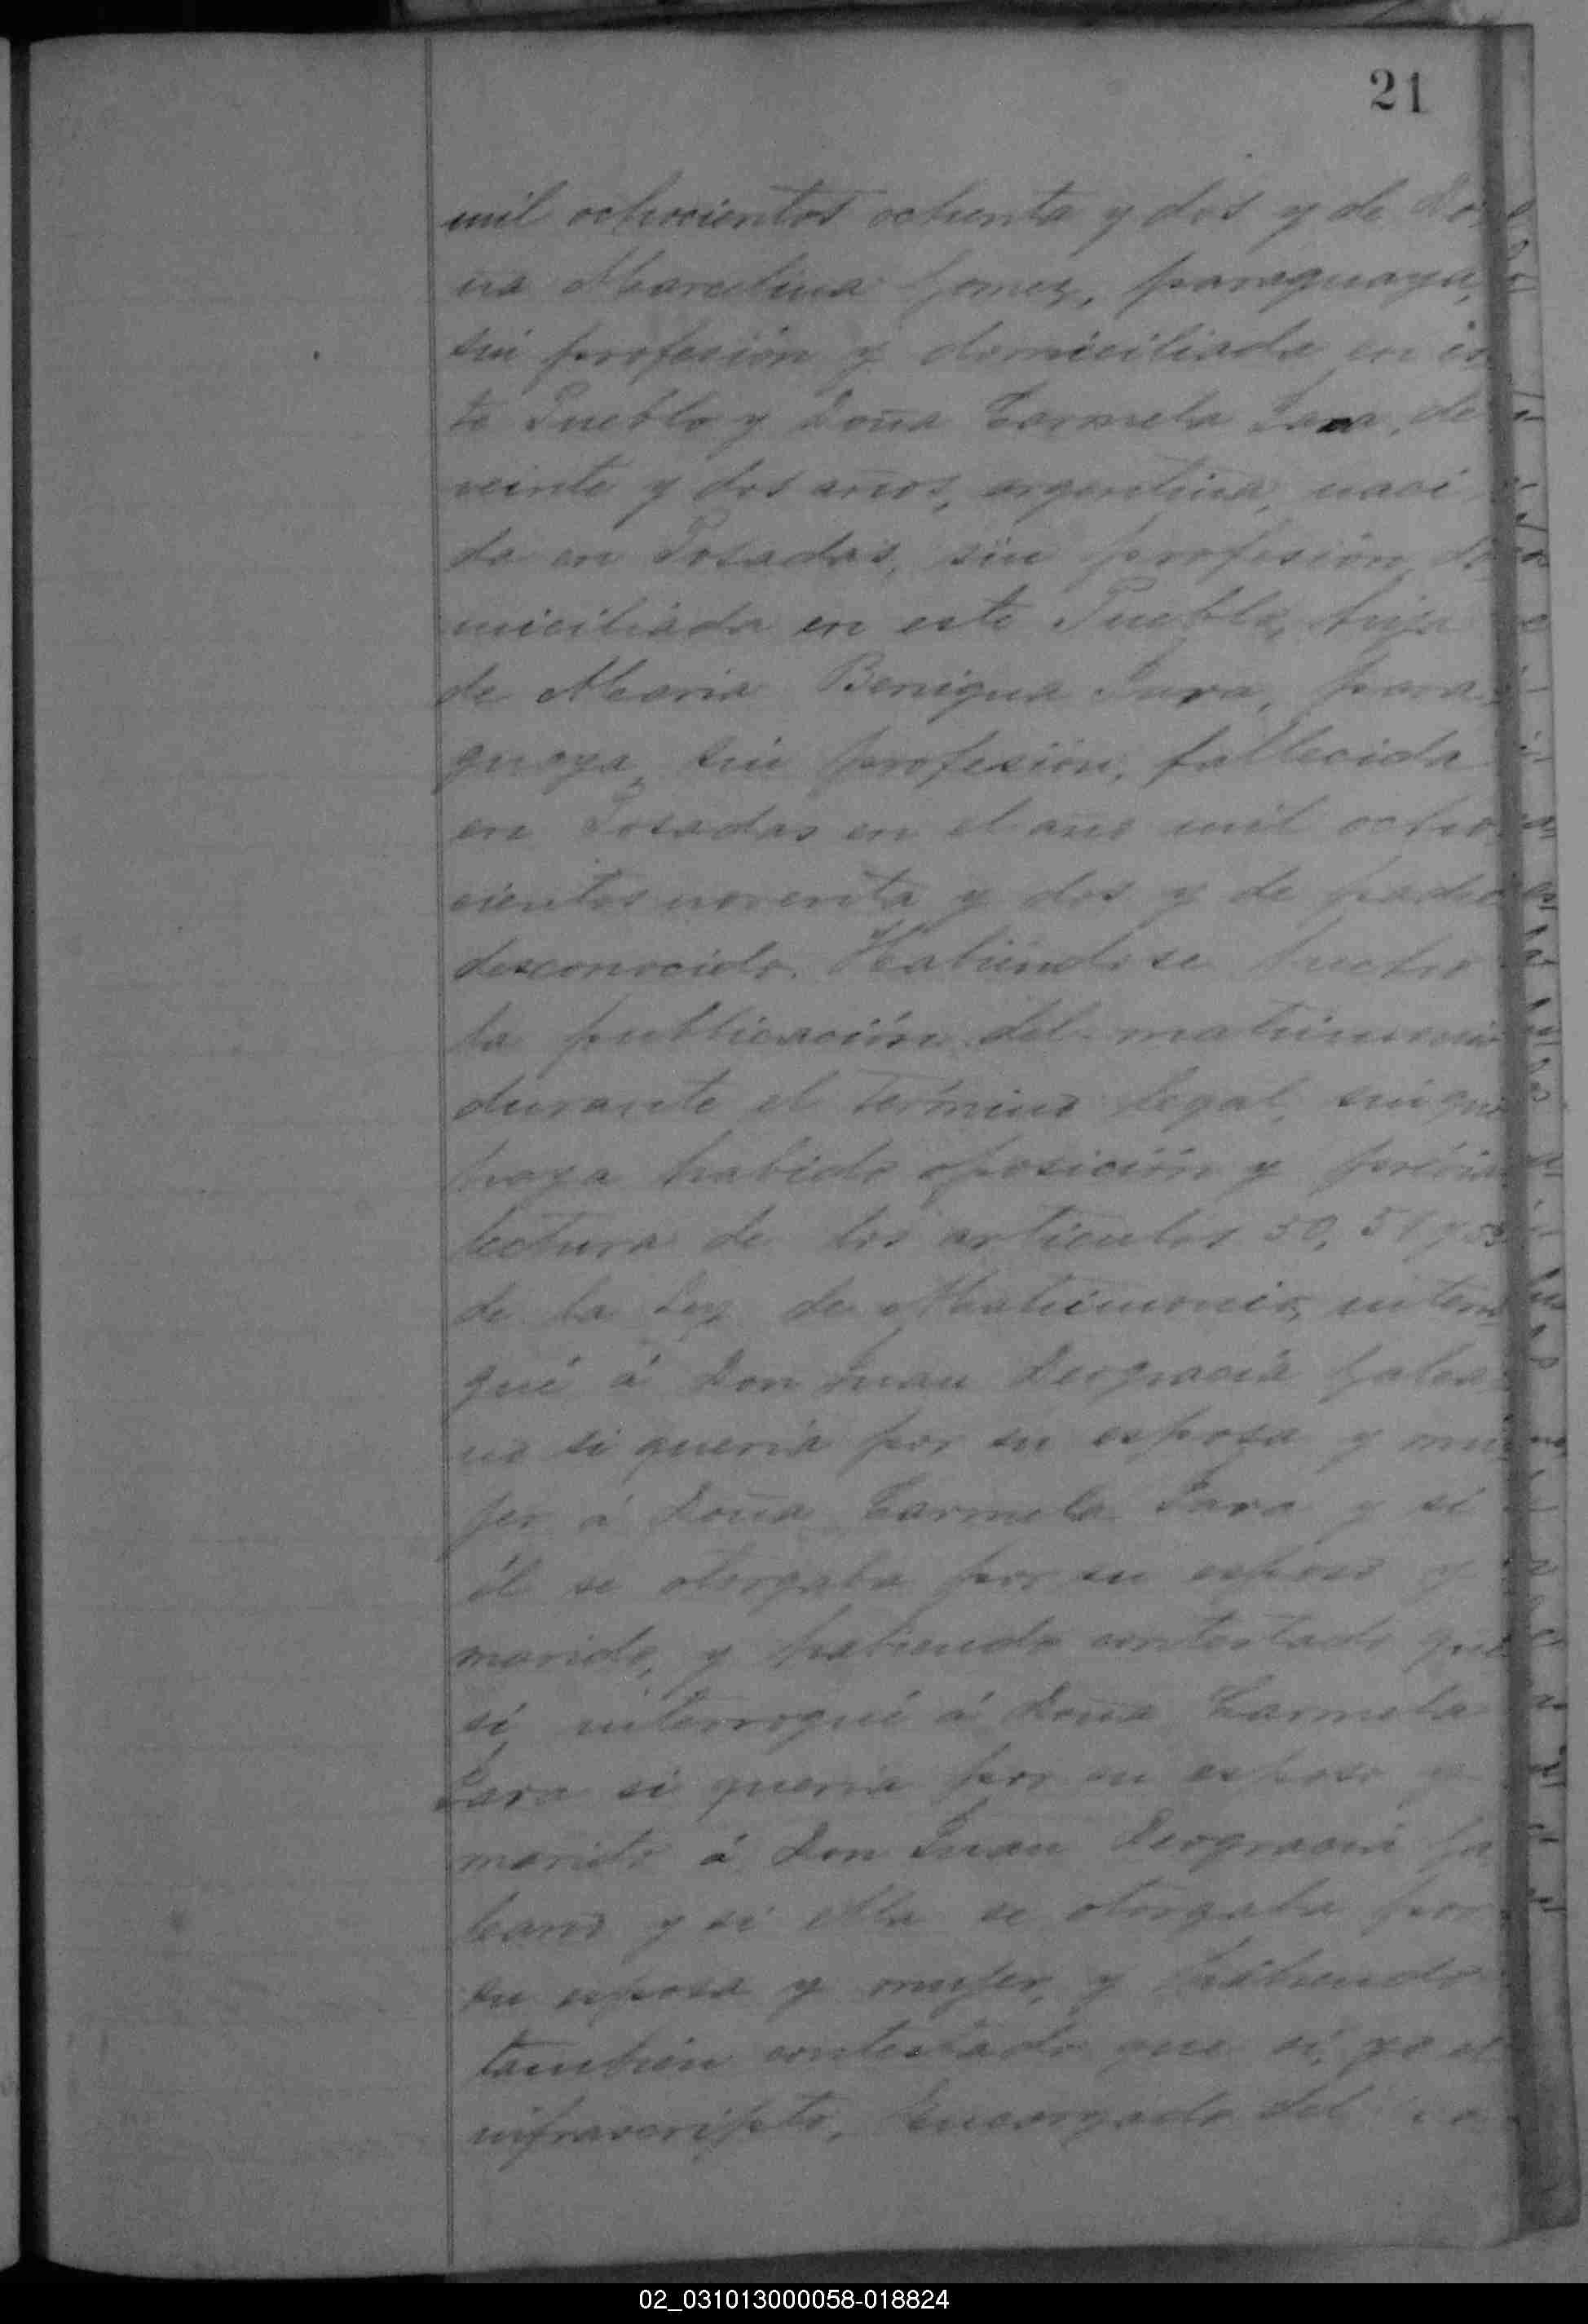 21
mil ochocientos ochenta y dos y de Do
ña Marcelina Gomez, paraguaya,
sin profesión y domiciliada en es
te Pueblo y Doña Carmela Jara, de
veinte y dos años, argentina, naci
da en Posadas, sin profesión, do
miciliada en este Pueblo, hija
de Maria Benigna Jara, para
guaya, sin profesión, fallecida
en Posadas en el año mil ocho
cientos noventa y dos y de padre
desconocido. Habiéndose hecho
la publicación del matrimonio
durante el término legal, sin que
haya habido oposición y prévia
lectura de los articulos 50, 51 y 53
de la Ley de Matrimonio, interro
gué á Don Juan Deogracia Galea
no si queria por su esposa y mu
jer á Doña Carmela Jara y si
él se otorgaba por su esposo y
marido, y habiendo contestado que
sí interrogué á Doña Carmela
Jara si queria por su esposo y
marido á Don Juan Deogracia Ga
leano y si ella se otorgaba por
su esposa y mujer, y habiendo
tambien contestado que sí, yo el
infrascripto, Encargado del
02_031013000058-018824